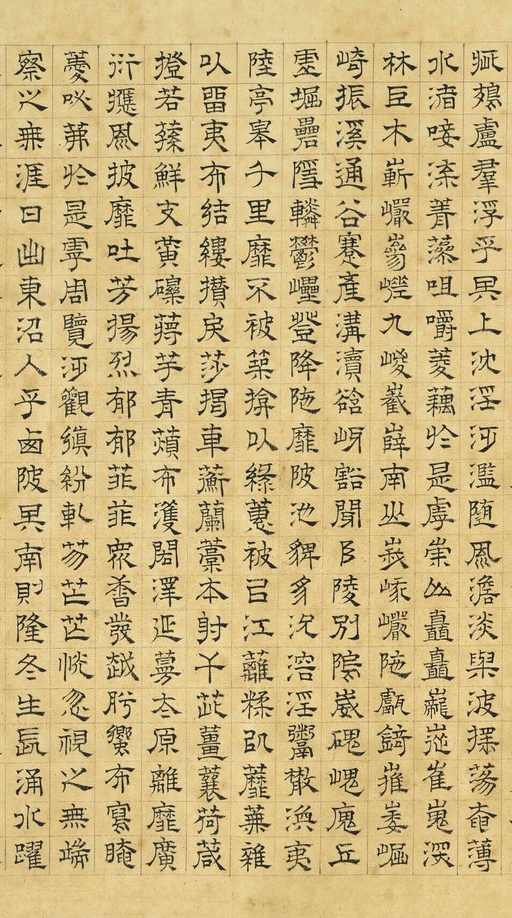 疵鵁盧羣浮乎其上沈淫泛濫隨風澹淡與波搖蕩奄薄
水渚唼喋菁藻咀嚼菱藕於是虖崇山矗矗巃嵸崔嵬深
林巨木嶄巖嵾嵯九嵕嶻嶭南山峩峩巖陁甗錡嶊崣崛
崎振溪通谷蹇產溝瀆谽呀豁閜阜陵別隝崴磈嵔廆丘
虛堀礨隱轔鬱𡾋登降陁靡陂池貏豸沇溶淫鬻散渙夷
陸亭皋千里靡不被築揜以綠蕙被以江蘺糅以蘼蕪雜
以留夷布結縷攢戾莎揭車蘅蘭藁本射干茈薑蘘荷葴
橙若蓀鮮支黃礫蔣芧青薠布濩閎澤延蔓太原離靡廣
衍應風披靡吐芳揚烈郁郁菲菲衆香發越肸蠁布寫晻
薆咇茀於是虖周覽泛觀縝紛軋芴芒芒怳忽視之無端
察之無涯日出東沼入乎西陂其南則隆冬生長涌水躍